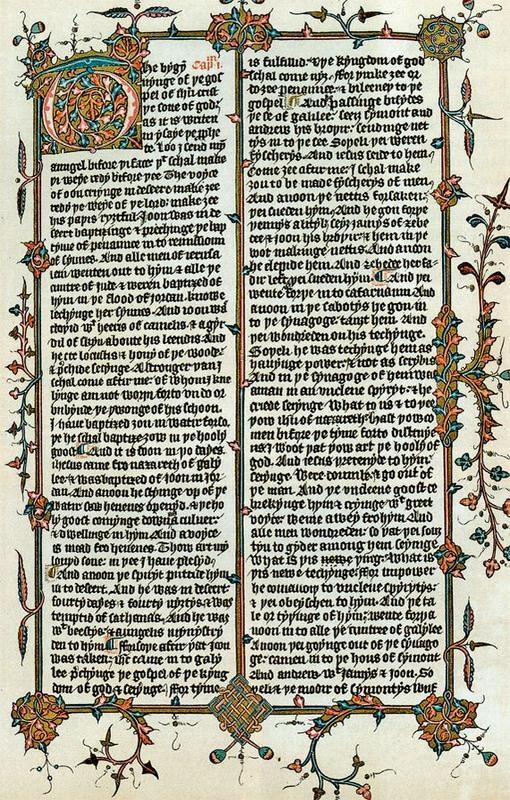 The bygyn Capᵐ i.
nynge of þe gos
pel of ihū crist
þe sone of god;
as it is writen
in ysaye þe prophe
te. Loo I send my
aungel bifore þi face þᵗ schal make
þi weye redy bifore þee. The voyce
of oon cryinge in desert: make ȝee
redy þe weye of þe lord: make ȝee
his paþis ryȝtful. Joon was in de
sert baptisynge & prechynge þe bap
tyme of penaunce in to remissioun
of synnes. And alle men of ierusa
lem wenten out to hym & alle þe
cuntre of jude & weren baptized of
hym in þe flood of jordan. knowe
lechynge her synnes. And ioon was
cloþid wᵗ heeris of camelis & a gyr
dil of skyn aboute his leendis. And
he eet locustis & hony of þe wode.
& prechide seyinge. A stronger þan I
schal come aftir me: of whom I kne
lynge am not worþi forto vn do or
vnbynde þe þwonge of his schoon.
I haue baptized ȝou in water forsoþe
he schal baptize ȝow in þe hooly
goost. And it is doon in þo dayes.
ihesus came fro nazareth of galy
lee & was baptized of ioon in jor
dan. And anoon he styinge vp of þe
water saw heuenes opened. & þe ho
ly goost comynge down as culuer:
& dwellinge in hym. And a voyce
is maad fro heuenes. Thow art my
loued sone: in þee I haue plesid.
And anoon þe spiryt puttide hym
in to desert. And he was in desert
fourty dayes & fourty nyȝtis. & was
temptid of sathanas. And he was
wᵗ beestys: & aungelis mynystry
den to hym. Forsoþe aftir þat joon
was taken: ihc came in to galy
lee prechynge þe gospel of þe kyng
dom of god & seyinge. For tyme
is fulfillid. & þe kyngdom of god
schal come nyȝ. for þinke ȝee or
do ȝee penaunce. & bileeuey to þe
gospel. And passinge bisydes
þe see of galilee: seeȝ symont and
andrew his broþir. sendinge net
tys in to þe see. Soþeli þei weren
fyscherys. And iesus seide to hem.
Come ȝee aftir me: I schal make
ȝou to be made fyscherys of men.
And anoon þe nettis forsaken:
þei sueden hym. And he gon forþe
þennys a lityl. seeȝ jamys of zebe
dee & joon his broþir: & hem in þe
bot makinge nettis. And anoon
he clepide hem. And zebedee her fa
dir left þei sueden hym. And þei
wente forþe in to cafarnaum. And
anoon in þe sabotys he gon in
to þe synagoge: tauȝt hem. And
þei wondreden on his techynge.
Soþeli he was techynge hem as
hauynge power: & not as scrybis.
And in þe synagoge of hem was
a man in an vnclene spyryt. & he
criede seyinge. What to us & to þee
þow ihu of nazareth: hast þow co
men bifore þe tyme forto distruye
us. I woot þat þow art þe hooly of
god. And iesus þretenyde to hym:
seyinge. Wexe doumb: & go out of
þe man. And þe vnclene goost de
brekynge hym: & cryinge wᵗ greet
voyce: wente awey fro hym. And
alle men wondreden: so þat þei souȝ
tyn to gyder among hem seyinge.
What is þis þing: what is
þis newe techynge: for in power
he comaundiþ to vnclene spyrytys:
& þei obeyschen to hym. And þe ta
le or tyþinge of hym: wente forþ a
noon in to alle þe cuntree of galylee
Anoon þei goynge out of þe synago
ge: camen in to þe hous of symont
and andrew wᵗ Jamys & joon. So
þeli & þe modir of symontys wijf